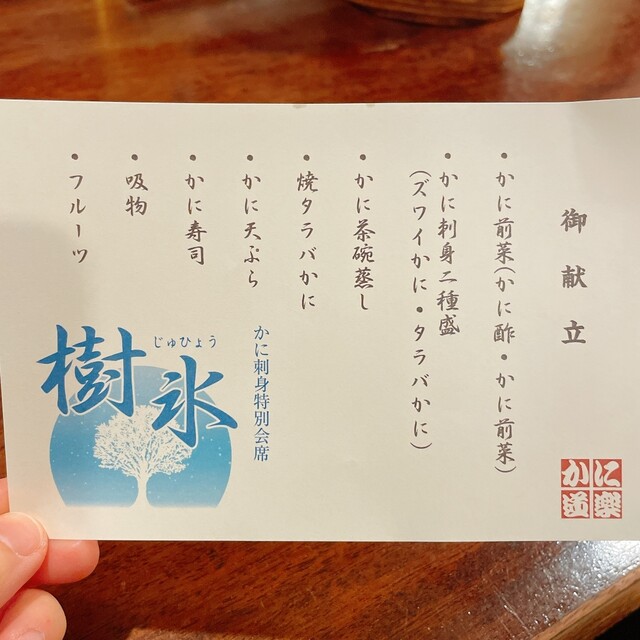 御献立
・かに前菜(かに酢・かに前菜)
・かに刺身二種盛
(ズワイかに・タラバかに)
・かに茶碗蒸し
・焼タラバかに
・かに天ぷら
・かに寿司
・吸物
・フルーツ
かに刺身特別会席
じゅひょう
樹氷
かに
道楽